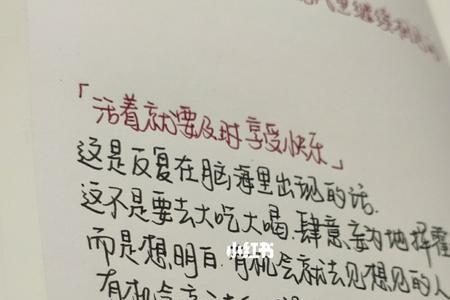 继续
「活着就要及时享受快乐」
这是反复在脑海里出现的话.
这不是要去大吃大喝.肆意妄为地挥霍
而是想明白.有机会就去见想见的人
小红书
有机会